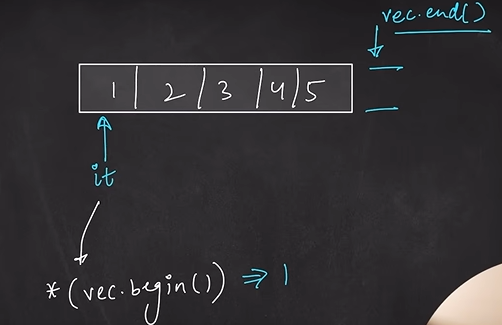 vec.end()
1 | 2 | 3 | 4 | 5
it
*(vec.begin()) ⇒ 1